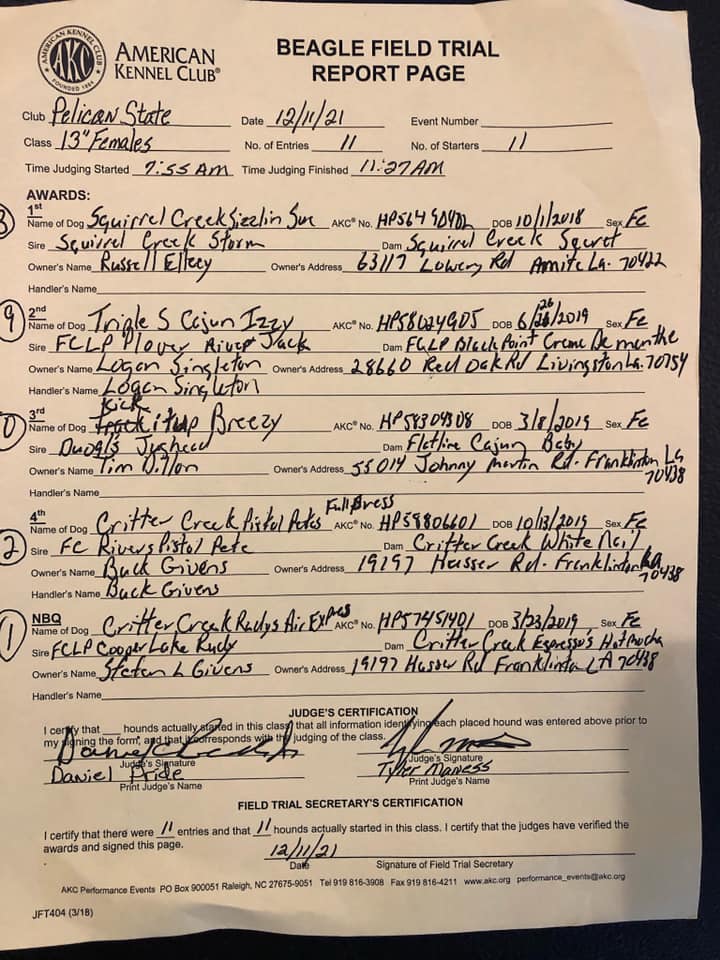 AMERICAN KENNEL CLUB
AKC
FOUNDED 1884
AMERICAN
KENNEL CLUB®
BEAGLE FIELD TRIAL
REPORT PAGE
Club Pelican State Date 12/11/21 Event Number
Class 13" Females No. of Entries 11 No. of Starters 11
Time Judging Started 7:55 AM Time Judging Finished 11:27 AM
AWARDS:
1st
Name of Dog Squirrel Creek Sizzlin Sue AKC® No. DOB 10/1/2018 Sex Fe
Sire Squirrel Creek Storm Dam Squirrel Creek Secret
Owner's Name Russell Owner's Address 63117 Lowery Rd Amite La. 70422
Handler's Name
9 2nd
Name of Dog Triple S Cajun Izzy AKC® No. HP58024905 DOB 6/26/2019 Sex Fe
Sire FCLP Plover River Jack Dam FCLP Black Point Creme De menthe
Owner's Name Logan Singleton Owner's Address 28660 Red Oak Rd Livingston La. 70754
Handler's Name Logan Singleton
3rd Kick
Name of Dog itup Breezy AKC® No. HP58304308 DOB 3/8/2019 Sex Fe
Sire Jughead Dam Flatline Cajun Baby
Owner's Name Tim Dillon Owner's Address 55014 Johnny Martin Rd. Franklinton La
70438
Handler's Name
4th Full Dress
Name of Dog Critter Creek Pistol Petes AKC® No. HP59806601 DOB 10/13/2019 Sex Fe
2 Sire FC Rivers Pistol Pete Dam Critter Creek White
Owner's Name Buck Givens Owner's Address 19197 Husser Rd. Franklinton LA
70438
Handler's Name Buck Givens
1 NBQ
Name of Dog Critter Creek Rudys Air Expres AKC® No. HP57451401 DOB 3/23/2019 Sex Fe
Sire FCLP Cooper Lake Rudy Dam Critter Creek Espresso's Hot mocha
Owner's Name L Givens Owner's Address 19197 Husser Rd Franklinton LA 70438
Handler's Name
JUDGE'S CERTIFICATION
I certify that ___ hounds actually started in this class, that all information identifying each placed hound was entered above prior to
my signing the form, and that it corresponds with the judging of the class.
Judge's Signature Judge's Signature
Daniel Pride Tyler Maness
Print Judge's Name Print Judge's Name
FIELD TRIAL SECRETARY'S CERTIFICATION
I certify that there were 11 entries and that 11 hounds actually started in this class. I certify that the judges have verified the
awards and signed this page.
12/11/21
Date Signature of Field Trial Secretary
AKC Performance Events PO Box 900051 Raleigh, NC 27675-9051 Tel 919 816-3908 Fax 919 816-4211 www.akc.org performance_events@akc.org
JFT404 (3/18)